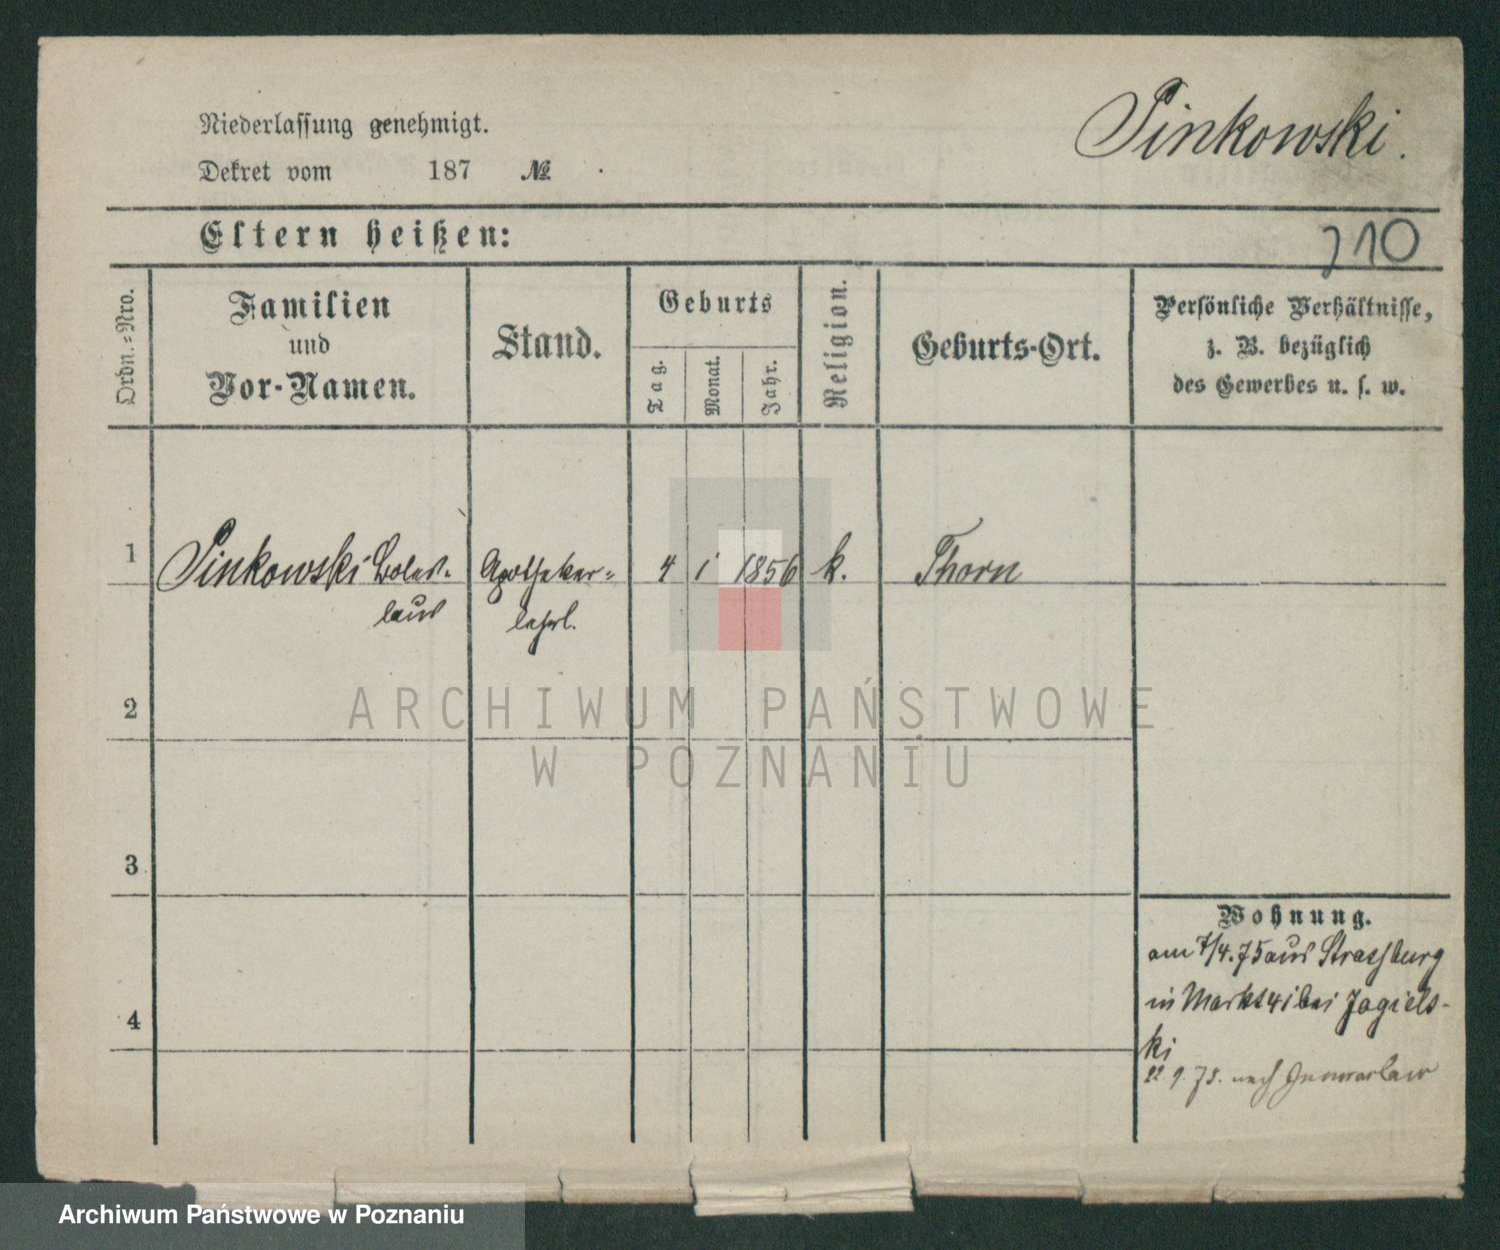 Pinkowski.
Niederlassung genehmigt.
Dekret vom 187 №
Eltern heißen:
710
Ordn.=Nro.
Familien
und
Vor-Namen.
Stand.
Geburts
Tag.
Monat.
Jahr.
Religion.
Geburts-Ort.
Persönliche Verhältnisse,
z. B. bezüglich
des Gewerbes u. s. w.
1 Pinkowski Boles- Apotheker= 4 1 1856 k. Thorn
laus lehrl.
2
ARCHIWUM PAŃSTWOWE
W POZNANIU
3
Wohnung.
am 7/4.75 aus Strasburg
in Markt 41 bei Jagiels-
4
ki
22.9.75. nach Inowraclaw
Archiwum Państwowe w Poznaniu